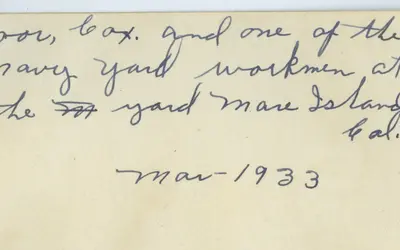 oor, Cox. and one of the
navy yard workmen at
the yard Mare Island
Cal.
Mar-1933